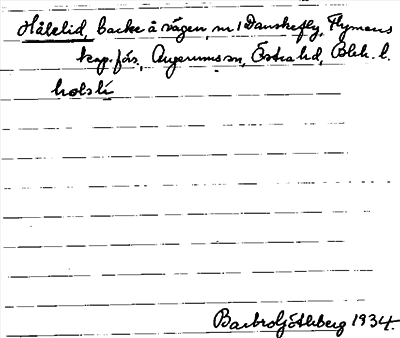 Hålelid, backe å vägen, nr 1 Danskefly, Flymens
kap. förs. Augerums sn, Östra hd, Blek. l.
holslí
Barbro Ljót Ahlberg 1934.